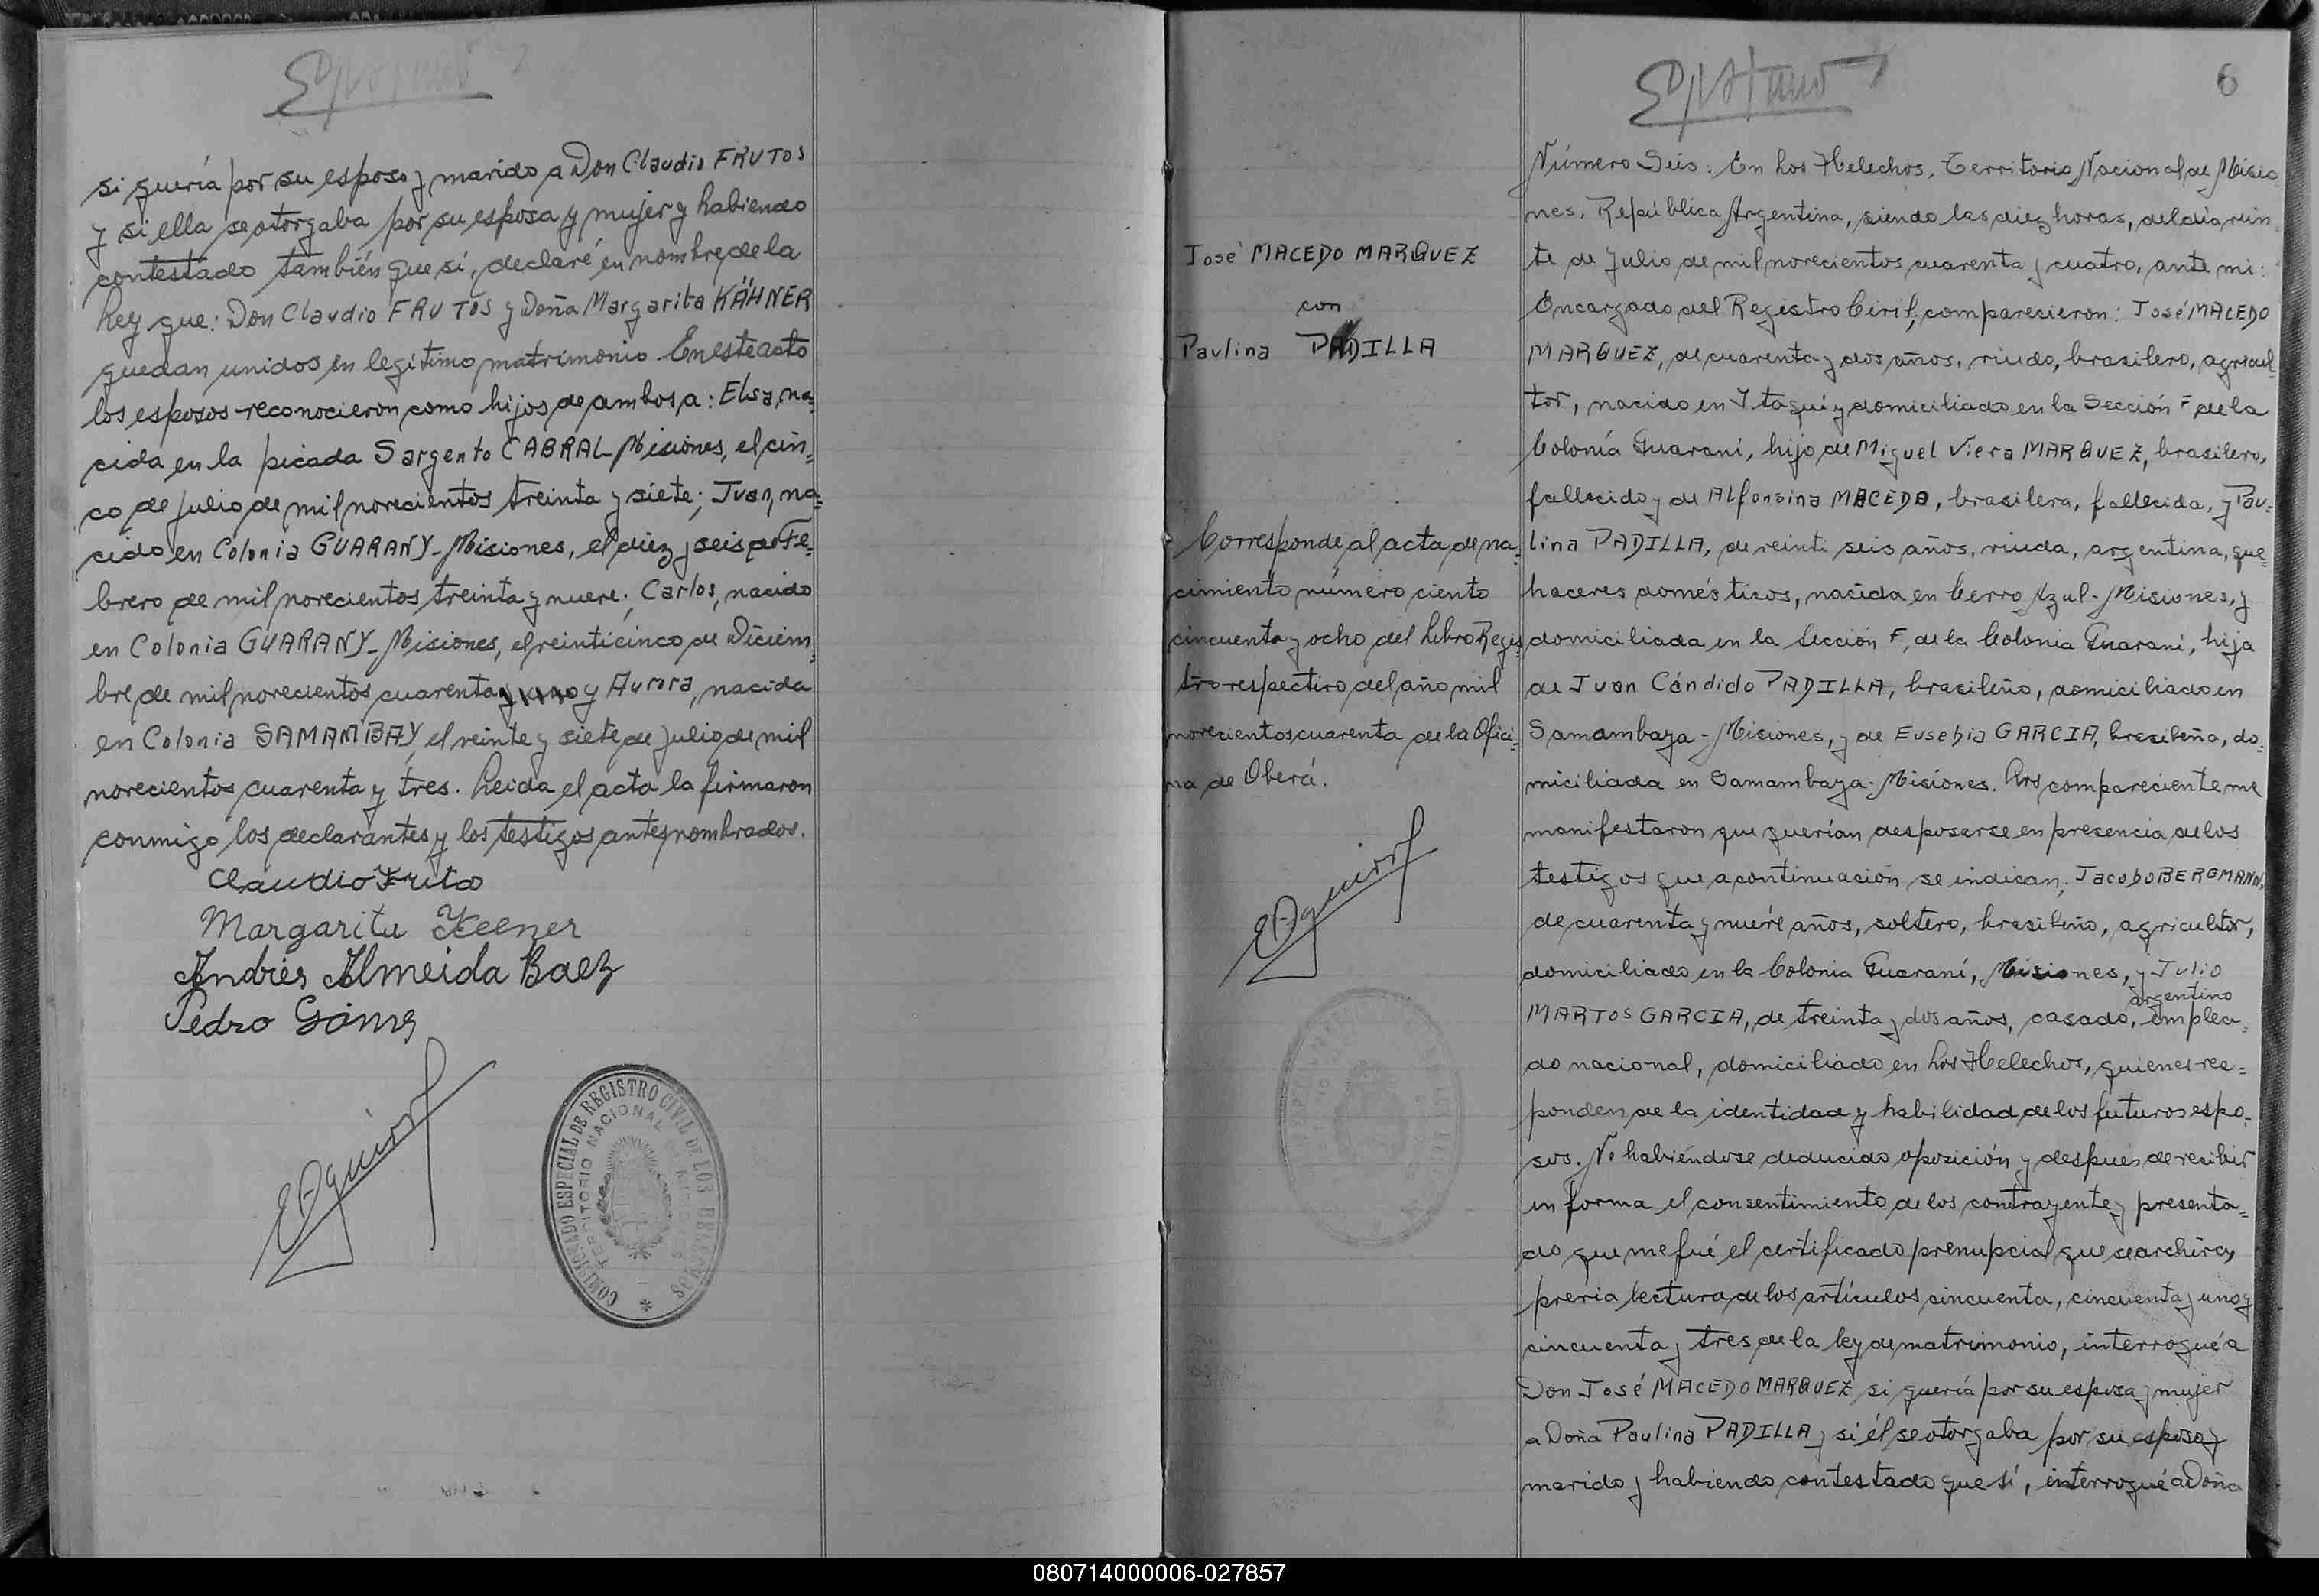 si quería por su esposo y marido a Don Claudio FRUTOS
y si ella se otorgaba por su esposa y mujer y habiendo
contestado también que sí, declaré en nombre de la
Ley que: Don Claudio FRUTOS y Doña Margarita KÄHNER
quedan unidos en legítimo matrimonio. En este acto
los esposos reconocieron como hijos de ambos a: Elsa, na=
cida en la picada Sargento CABRAL-Misiones, el cin=
co de Julio de mil novecientos treinta y siete; Juan, na=
cido en Colonia GUARANY-Misiones, el diez y seis de Fe=
brero de mil novecientos treinta y nueve; Carlos, nacido
en Colonia GUARANY-Misiones, el veinticinco de Diciem=
bre de mil novecientos cuarenta y uno y Aurora, nacida
en Colonia SAMAMBAY, el veinte y siete de Julio de mil
novecientos cuarenta y tres. Leida el acta la firmaron
conmigo los declarantes y los testigos antes nombrados.
Claudio Fruto
Margarita Keener
Andrés Almeida Baez
Pedro Gómez
COMISIONADO ESPECIAL DE REGISTRO CIVIL DE LOS HELECHOS
TERRITORIO NACIONAL DE MISIONES
6
José MACEDO MARQUEZ
con
Paulina PADILLA
Corresponde al acta de na=
cimiento número ciento
cincuenta y ocho del Libro Regis=
tro respectivo del año mil
novecientos cuarenta de la Ofici=
na de Oberá.
Número Seis: En Los Helechos, Territorio Nacional de Misio=
nes, República Argentina, siendo las diez horas, del día vein=
te de Julio de mil novecientos cuarenta y cuatro, ante mi:
Encargado del Registro Civil, comparecieron: José MACEDO
MARQUEZ, de cuarenta y dos años, viudo, brasilero, agricul=
tor, nacido en Itaquí y domiciliado en la Sección F de la
Colonia Guaraní, hijo de Miguel Viera MARQUEZ, brasilero,
fallecido y de Alfonsina MACEDO, brasilera, fallecida, y Pau=
lina PADILLA, de veinti seis años, viuda, argentina, que=
haceres domésticos, nacida en Cerro Azul-Misiones, y
domiciliada en la Sección F, de la Colonia Guaraní, hija
de Juan Cándido PADILLA, brasileño, domiciliado en
Samambaya-Misiones, y de Eusebia GARCIA, brasileña, do=
miciliada en Samambaya-Misiones. Los compareciente me
manifestaron que querían desposarse en presencia de los
testigos que a continuación se indican; Jacobo BERGMANN,
de cuarenta y nueve años, soltero, brasileño, agricultor,
domiciliado en la Colonia Guaraní, Misiones, y Julio
argentino
MARTOS GARCIA, de treinta y dos años, casado, emplea=
do nacional, domiciliado en Los Helechos, quienes res=
ponden de la identidad y habilidad de los futuros espo=
sos. No habiéndose deducido oposición y después de recibir
en forma el consentimiento de los contrayente y presenta=
do que me fué el certificado prenupcial que se archiva y
previa lectura de los artículos cincuenta, cincuenta y uno y
cincuenta y tres de la ley de matrimonio, interrogué a
Don José MACEDO MARQUEZ si quería por su esposa y mujer
a Doña Paulina PADILLA y si él se otorgaba por su esposo y
marido y habiendo contestado que sí, interrogué a Doña
080714000006-027857